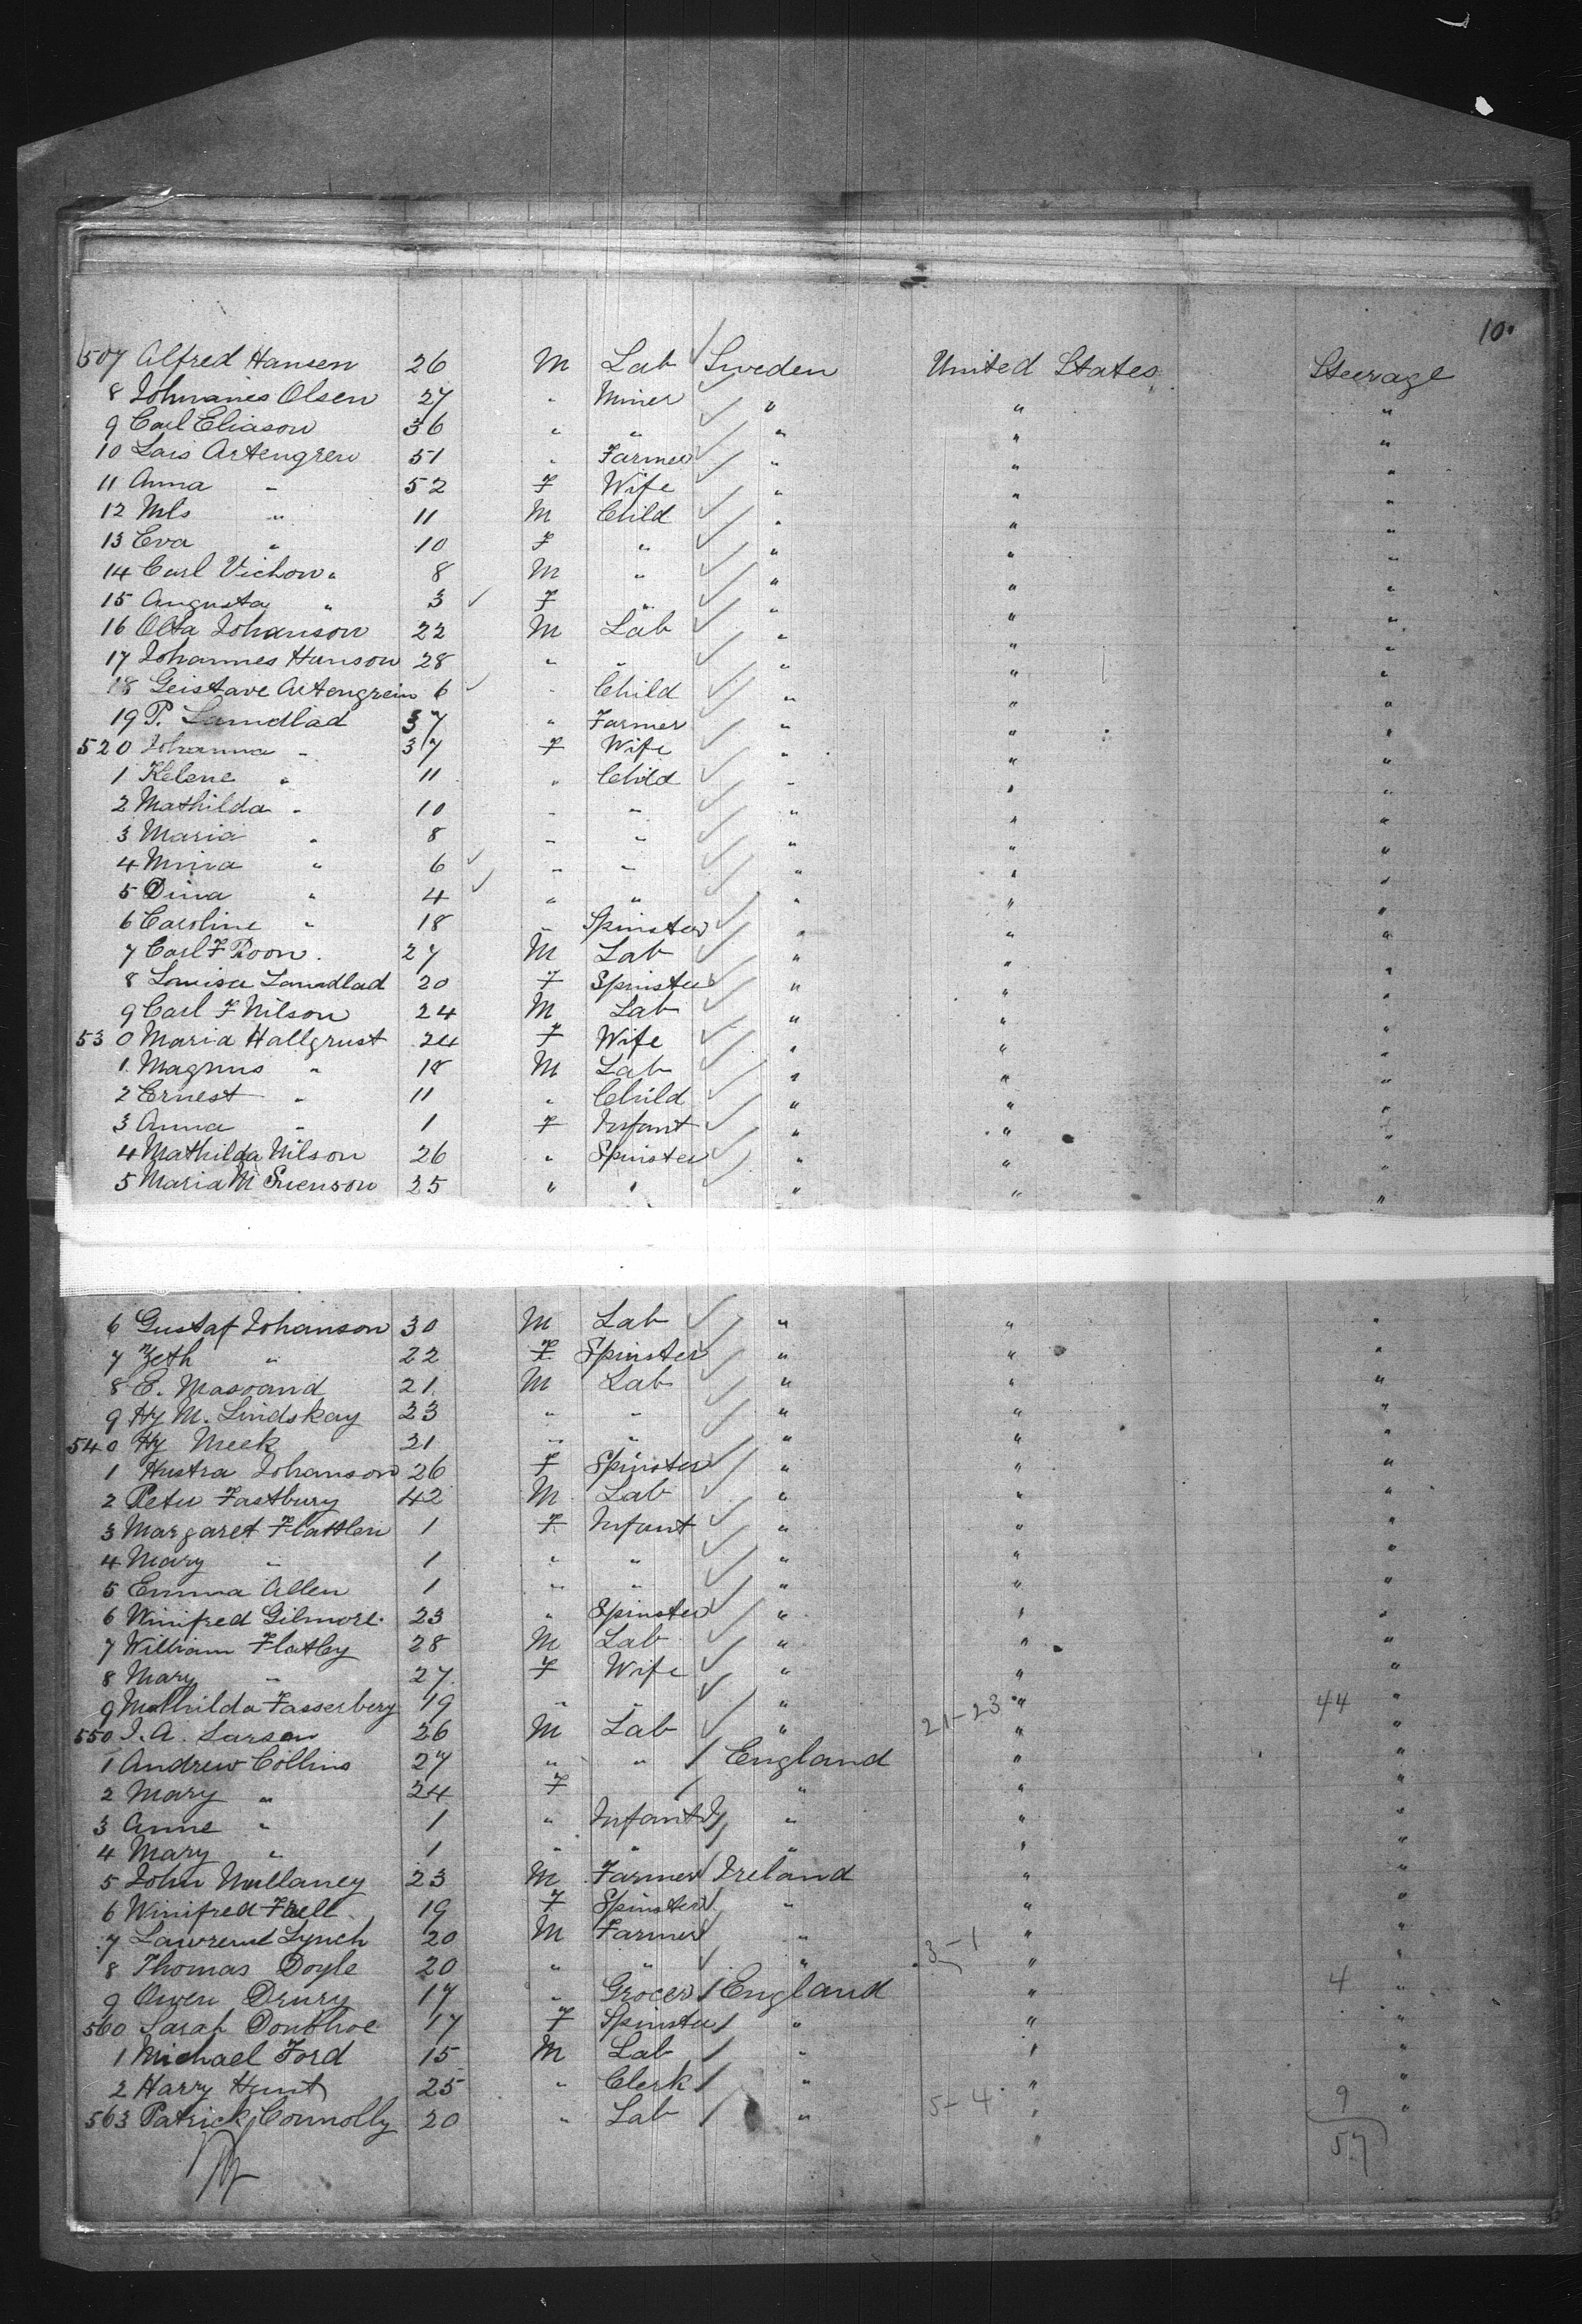 10.
507 Alfred Hansen 26 M Lab Sweden United States Steerage
8 Johnanies Olsen 27 " Miner " " "
9 Carl Eliason 36 " " " " "
10 Lars Artengren 51 " Farmer " " "
11 Anna " 52 F Wife " " "
12 Mls " 11 M Child " " "
13 Eva " 10 F " " " "
14 Carl Vichon " 8 M " " " "
15 Augusta " 3 F " " " "
16 Olta Johanson 22 M Lab " " "
17 Johannes Hanson 28 " " " " "
18 Geistave Artengrein 6 " Child " " "
19 P. Lamdlad 37 " Farmer " " "
520 Johanna " 37 F Wife " " "
1 Kelene " 11 " Child " " "
2 Mathilda " 10 " " " " "
3 Maria " 8 " " " " "
4 Mnia " 6 " " " " "
5 Dina " 4 " " " " "
6 Caroline " 18 " Spinster " " "
7 Carl F Roon. 27 M Lab " " "
8 Louisa Lamdlad 20 F Spinster " " "
9 Carl F Nilson 24 M Lab " " "
530 Maria Hallgrust 24 F Wife " " "
1 Magnus " 18 M Lab " " "
2 Ernest " 11 " Child " " "
3 Anna " 1 F Infant " " "
4 Mathilda Nilson 26 " Spinster " " "
5 Maria M Suenson 25 " " " " "
6 Gustaf Johanson 30 M Lab " " "
7 Zeth " 22 F Spinster " " "
8 E. Masoand 21 M Lab " " "
9 Hy M. Lindskay 23 " " " " "
540 Hy Meek 21 " " " " "
1 Hustra Johanson 26 F Spinster " " "
2 Peter Fastbury 42 M Lab " " "
3 Margaret Flatten 1 F Infant " " "
4 Mary " 1 " " " " "
5 Emma Allen 1 " " " " "
6 Winifred Gilmore 23 " Spinster " " "
7 William Flatley 28 M Lab " " "
8 Mary " 27 F Wife " " "
9 Mathilda Fasserbery 19 " " " 21-23 " 44 "
550 J. A. Larsen 26 M Lab " " "
1 Andrew Collins 27 " " England " "
2 Mary " 24 F " " "
3 Anne " 1 " Infant " " "
4 Mary " 1 " " " " "
5 John Mullaney 23 M Farmer Ireland " "
6 Winifred Fall 19 F Spinster " " "
7 Lawrence Lynch 20 M Farmer " " "
8 Thomas Doyle 20 " " " 3-1 " "
9 Owen Drury 17 " Grocer England " 4 "
560 Sarah Donohoe 17 F Spinster " " "
1 Michael Ford 15 M Lab " " "
2 Harry Hunt 25 " Clerk " " "
563 Patrick Connolly 20 " Lab " 5-4 " 9 "
57